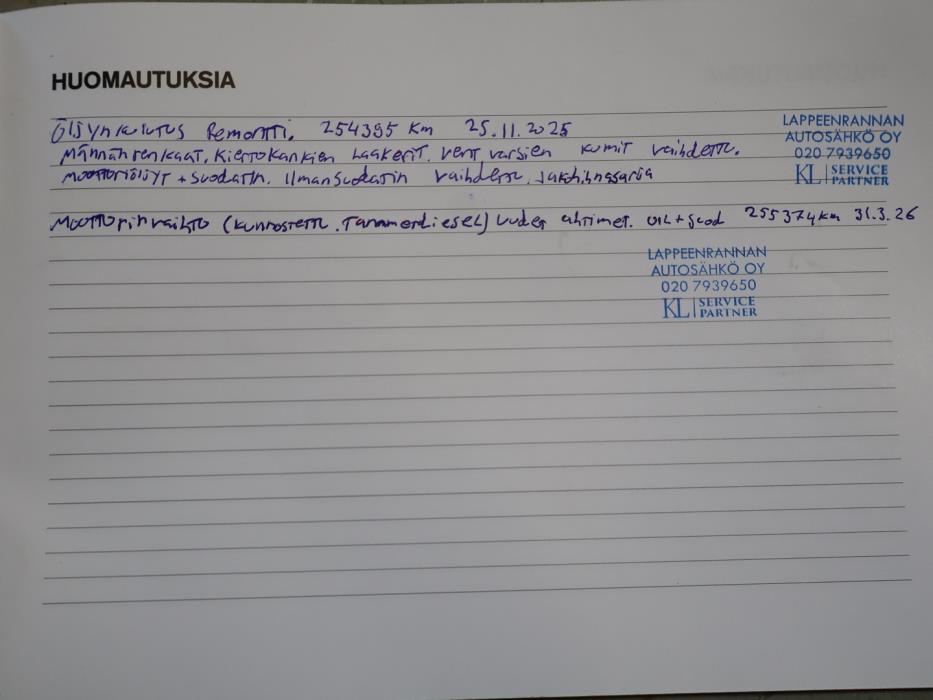 HUOMAUTUKSIA
Öljynkulutus Remontti. 254395 Km 25.11.2025
Männänrenkaat, Kiertokankien Laakerit. vent varsien kumit vaihdettu.
Moottoriöljyt + suodatin. Ilmansuodatin vaihdettu. Jakohihnasarja
LAPPEENRANNAN
AUTOSÄHKÖ OY
020 7939650
KL SERVICE PARTNER
Moottorinvaihto (kunnostettu. Tanamerdiesel) uudet ahtimet. öil + suod 255374 km 31.3.26
LAPPEENRANNAN
AUTOSÄHKÖ OY
020 7939650
KL SERVICE PARTNER